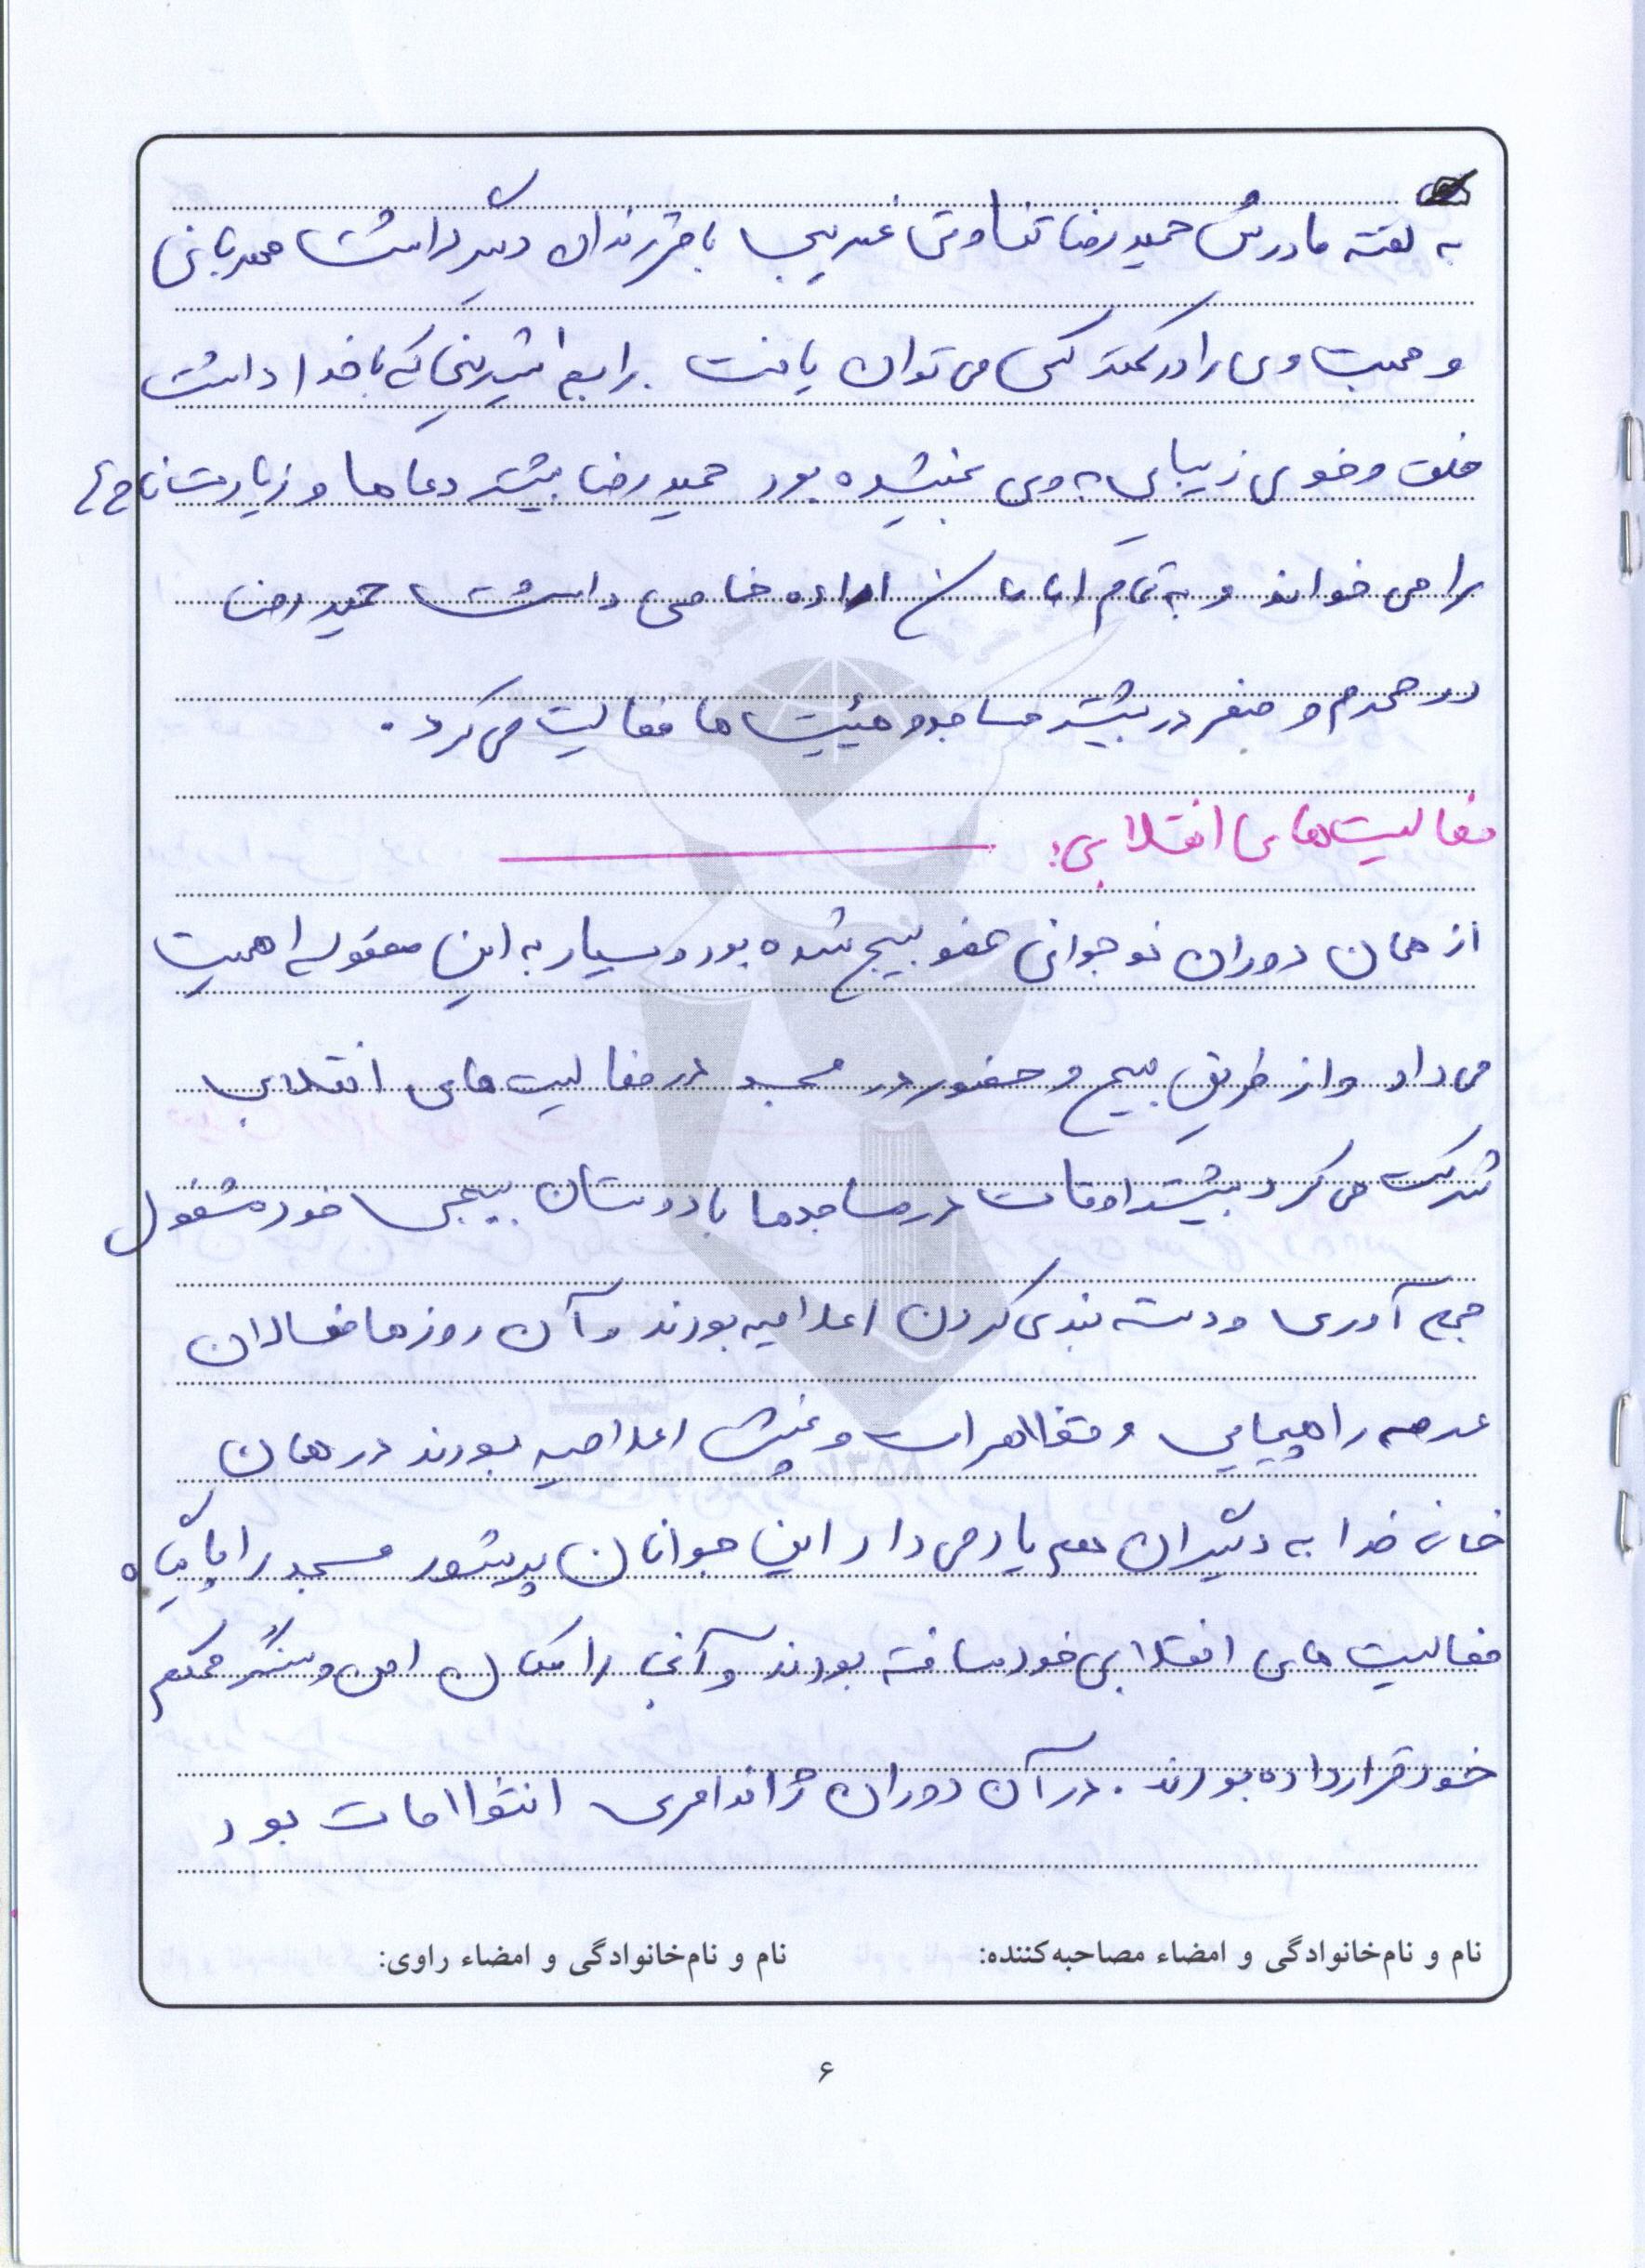 به گفته مادرش حمیدرضا تفاوتی عجیب با فرزندان دیگر داشت مهربانی
و محبت وی را در کمتر کسی می توان یافت . رابطه شیرینی که با خدا داشت
خلق و خوی زیبایی به وی بخشیده بود حمیدرضا بیشتر دعاها و زیارت نامه
را می خواند و به تمام امامان اراده خاصی داشت حمیدرضا
در محرم و صفر در بیشتر مساجد و هیئت ها فعالیت می کرد .
فعالیت های انقلابی:
از همان دوران نوجوانی عضو بسیج شده بود و بسیار به این مقوله اهمیت
می داد و از طریق بسیج و حضور در مسجد در فعالیت های انقلابی
شرکت می کرد بیشتر اوقات در مساجدها با دوستان بسیجی خود مشغول
جمع آوری و دسته بندی کردن اعلامیه بودند و آن روزها فعالان
عرصه راهپیمایی و تظاهرات و پخش اعلامیه بودند در همان
خانه خدا به دیگران هم یاد می داد این جوانان پرشور مسجد را پایگاه
فعالیت های انقلابی خود ساخته بودند و آنجا را مکان امن و سنگر محکم
خود قرار داده بودند . در آن دوران ژاندامری انتظامات بود
نام و نام‌خانوادگی و امضاء مصاحبه‌کننده:
نام و نام‌خانوادگی و امضاء راوی:
۶